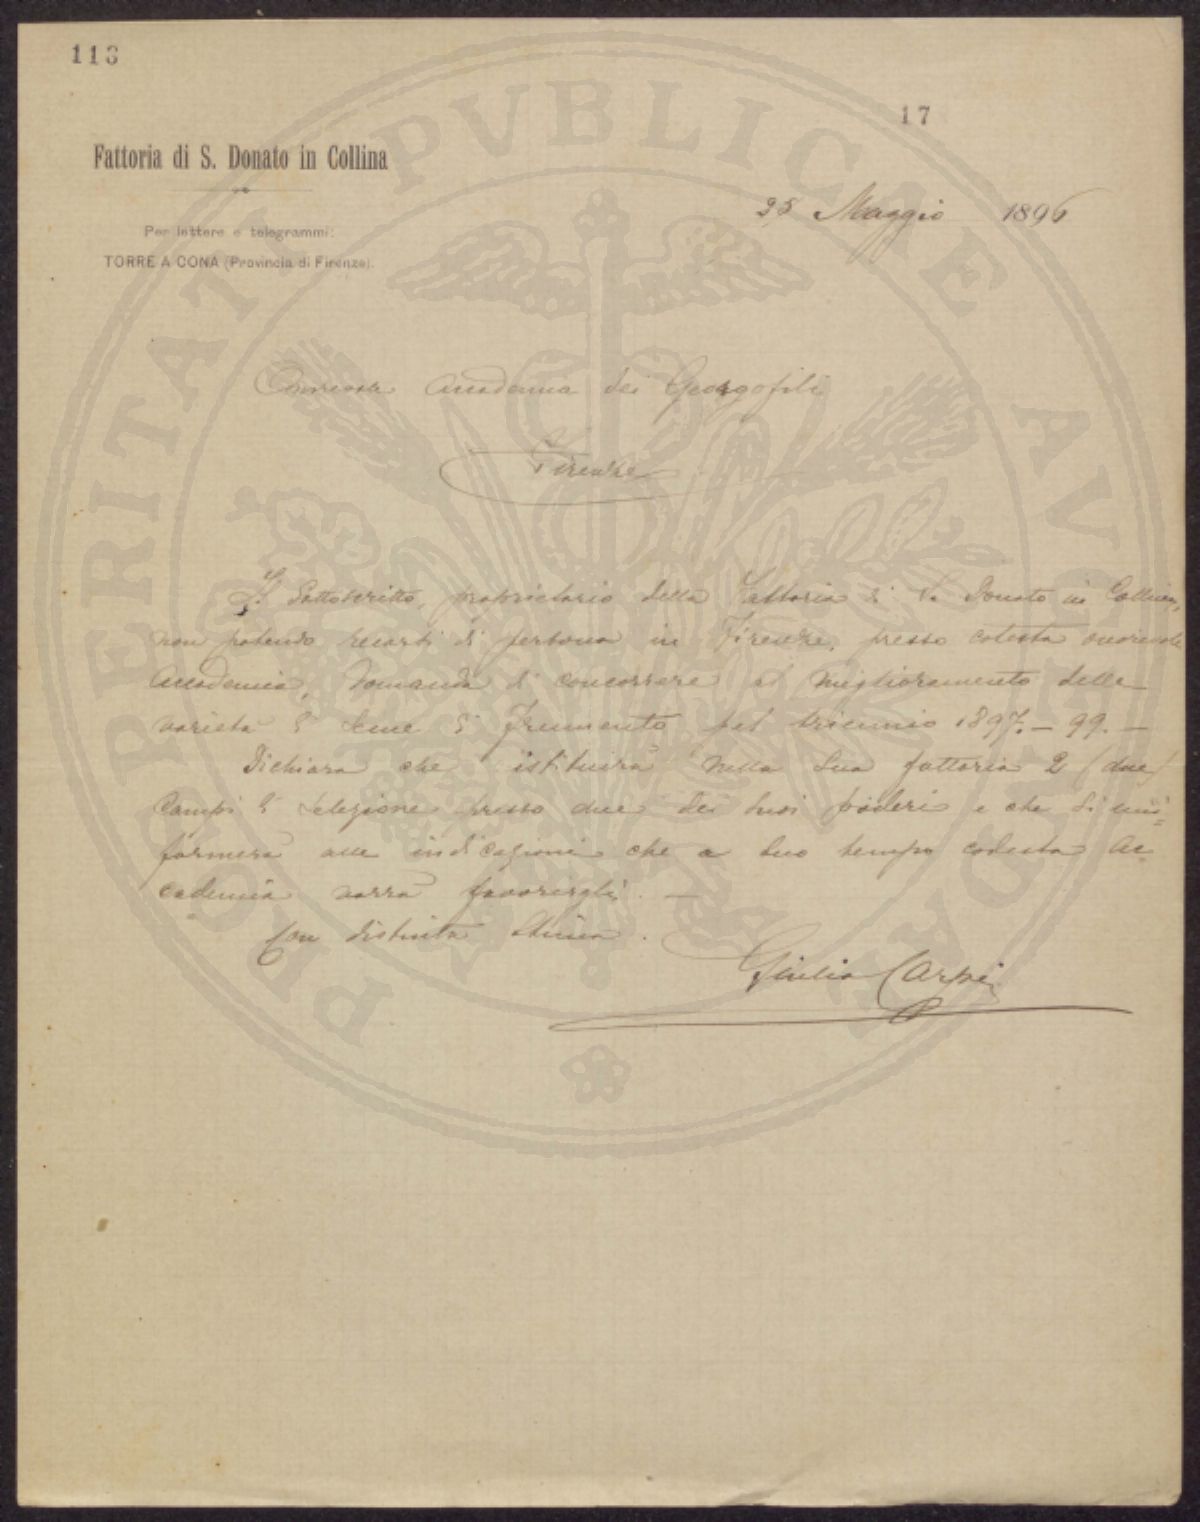 113
17
Fattoria di S. Donato in Collina
Per lettere e telegrammi:
TORRE A CONA (Provincia di Firenze).
25 Maggio 1896
Accademia dei Georgofili
Firenze
Il Sottoscritto, proprietario della Fattoria di S. Donato in Collina,
non potendo recarsi di persona in Firenze, presso codesta onorevole
Accademia, domanda di concorrere al miglioramento delle
varietà di seme di frumento pel triennio 1897. - 99. -
Dichiara che istituirà nella sua fattoria 2 (due)
Campi di selezione presso due dei suoi poderi e che si uni=
formerà alle indicazioni che a suo tempo codesta Ac
cademia vorrà favorirgli. -
Con distinta stima.
Giulio Carpi
PROSPERITATI PVBLICAE AVGENDAE